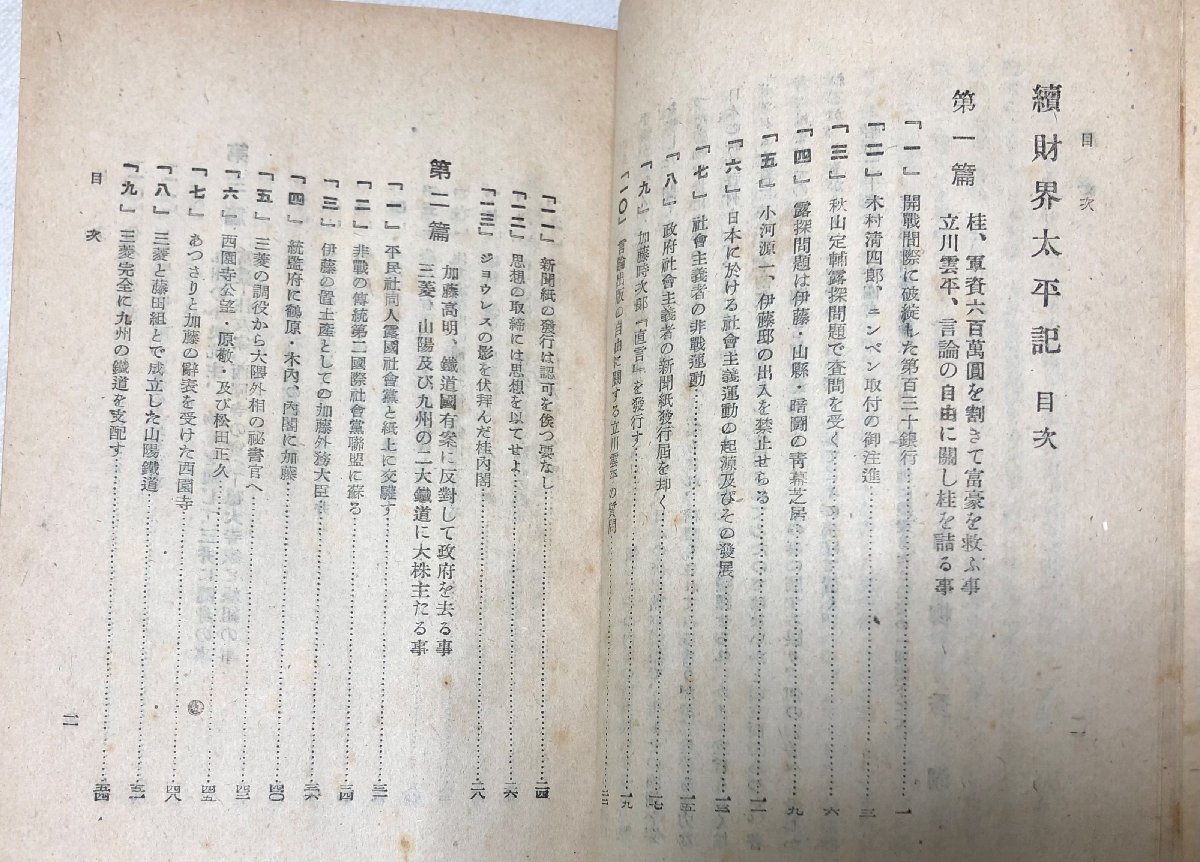 目次
續財界太平記 目次
第一篇 桂、軍資六百萬圓を割きて富豪を救ふ事
立川雲平、言論の自由に關し桂を詰る事
「一」 開戰間際に破綻した第百三十銀行 一
「二」 木村淸四郎、ニンベン取付の御注進
「三」 秋山定輔露探問題で査問を受く 六
「四」 露探問題は伊藤・山縣・暗鬪の靑幕芝居 九
「五」 小河源一、伊藤邸の出入を禁止せらる
「六」 日本に於ける社會主義運動の起源及びその發展
「七」 社會主義者の非戰運動
「八」 政府社會主義者の新聞紙發行屆を却く 一七
「九」 加藤時次郎「直言」を發行す 一九
「一〇」 言論出版の自由に關する立川雲平の質問
「一一」 新聞紙の發行は認可を俟つ要なし 二四
「一二」 思想の取締には思想を以てせよ
「一三」 ジョウレスの影を伏拜んだ桂內閣 二八
第二篇 加藤高明、鐵道國有案に反對して政府を去る事
三菱、山陽及び九州の二大鐵道に大株主たる事
「一」 平民社同人露國社會黨と紙上に交驩す
「二」 非戰の傳統第二國際社會黨聯盟に蘇る 三四
「三」 伊藤の置土産としての加藤外務大臣 三六
「四」 統監府に鶴原・木內、內閣に加藤 四〇
「五」 三菱の調役から大隈外相の祕書官へ
「六」 西園寺公望・原敬・及び松田正久 四五
「七」 あつさりと加藤の辭表を受けた西園寺 四八
「八」 三菱と藤田組とで成立した山陽鐵道
「九」 三菱完全に九州の鐵道を支配す 五四
目次